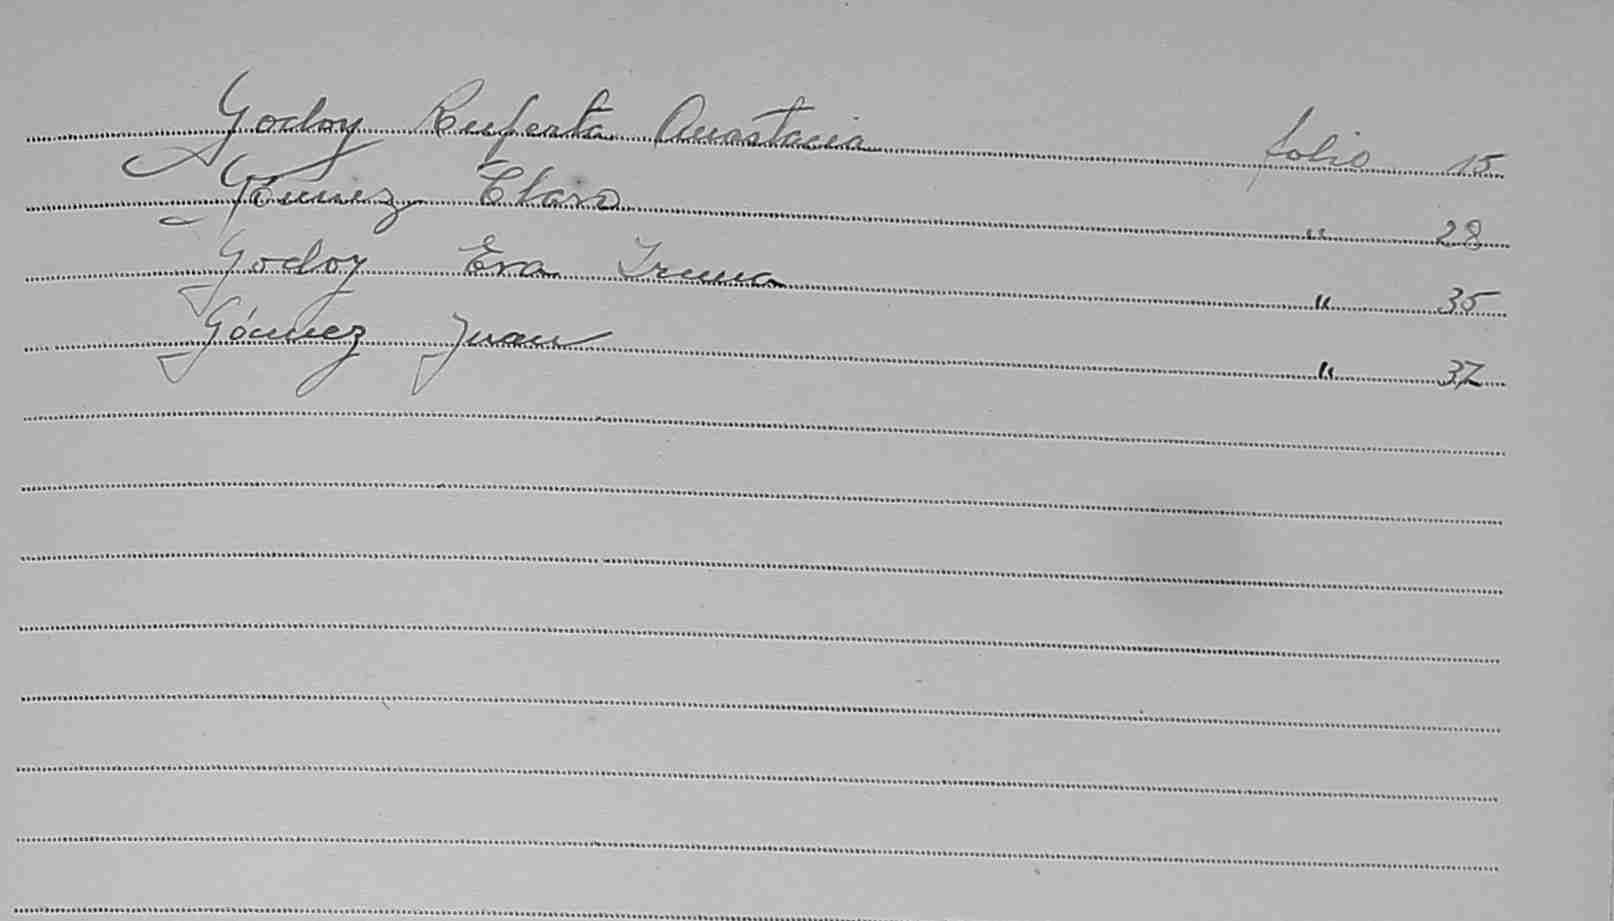 Godoy Ruperta Anastacia folio 15
Gómez Claro " 28
Godoy Eva Irma " 35
Gómez Juan " 37